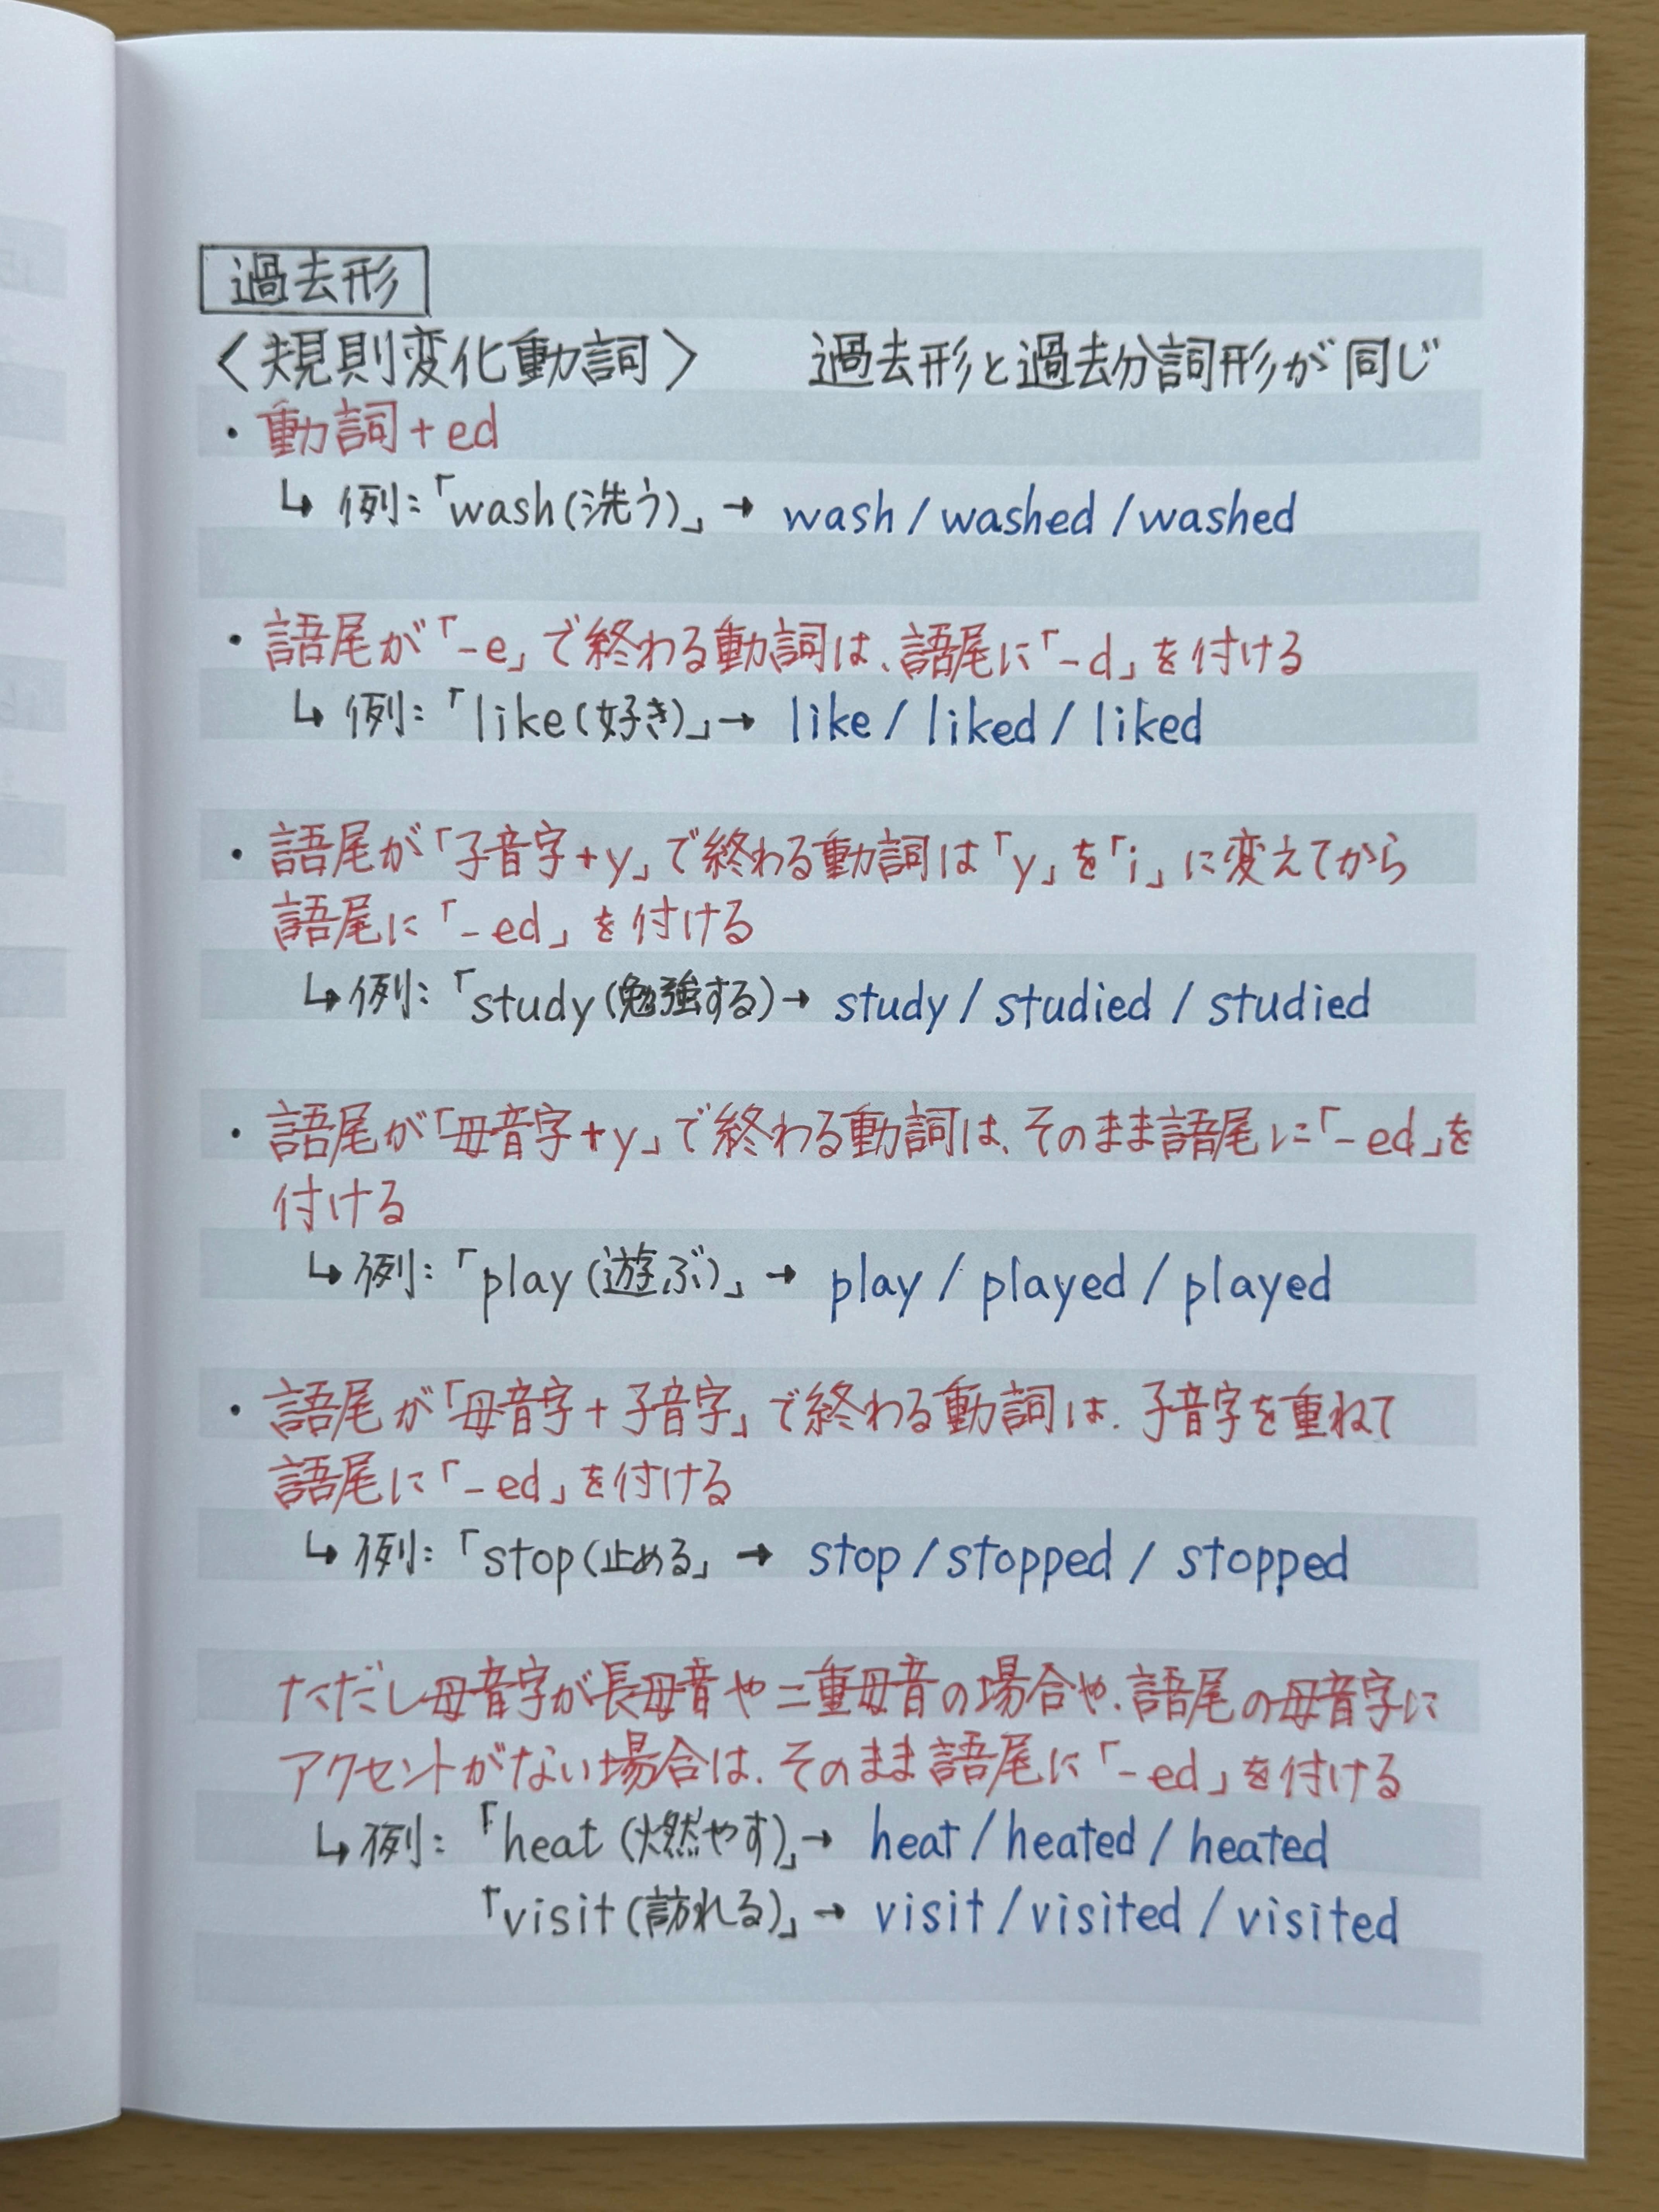 過去形
〈規則変化動詞〉 過去形と過去分詞形が同じ
・動詞+ed
↳ 例:「wash(洗う)」→ wash / washed / washed
・語尾が「-e」で終わる動詞は、語尾に「-d」を付ける
↳ 例:「like(好き)」→ like / liked / liked
・語尾が「子音字+y」で終わる動詞は「y」を「i」に変えてから
語尾に「-ed」を付ける
↳ 例:「study(勉強する)→ study / studied / studied
・語尾が「母音字+y」で終わる動詞は、そのまま語尾に「-ed」を
付ける
↳ 例:「play(遊ぶ)」→ play / played / played
・語尾が「母音字+子音字」で終わる動詞は、子音字を重ねて
語尾に「-ed」を付ける
↳ 例:「stop(止める」→ stop / stopped / stopped
ただし母音字が長母音や二重母音の場合や、語尾の母音字に
アクセントがない場合は、そのまま語尾に「-ed」を付ける
↳ 例:「heat(燃やす)」→ heat / heated / heated
「visit(訪れる)」→ visit / visited / visited